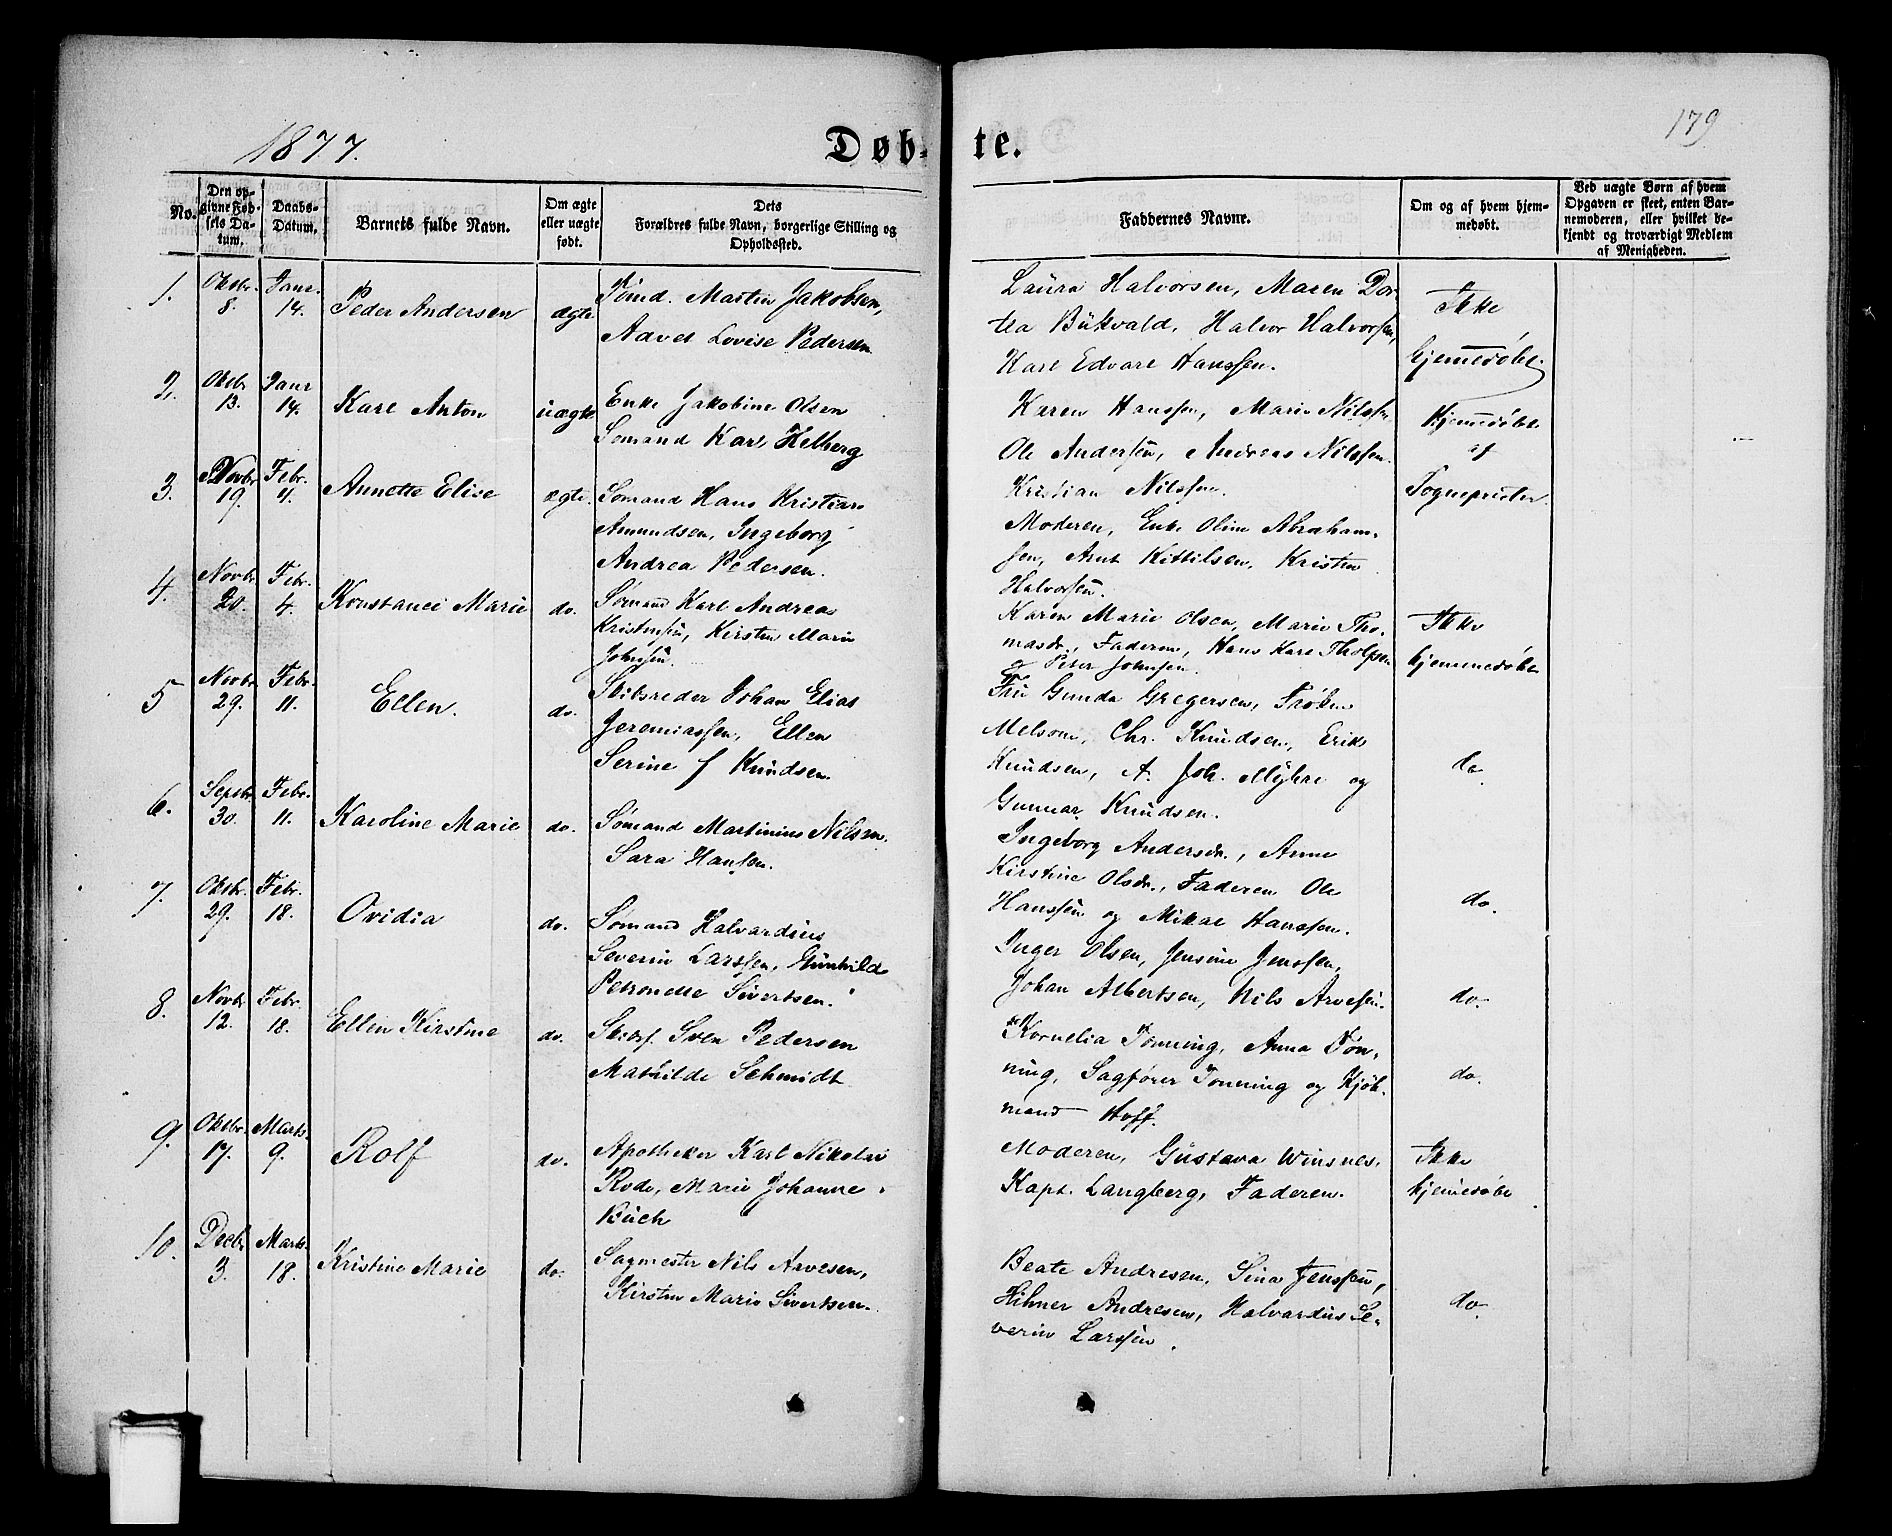 1877.
Døb-te.
179
No.
Den op-
givne Fød-
sels Da-
tum.
Daabs-
Datum.
Barnets fulde Navn.
Om ægte
eller uægte
født.
Dets
Forældres fulde Navn, borgerlige Stilling og
Opholdssted.
Faddernes Navne.
Om og af hvem hjem-
medøbt.
Ved uægte Børn af hvem
Opgaven er skeet, enten Bar-
nemoderen, eller hvilket be-
kjendt og troværdigt Medlem
af Menigheden.
1.
Oktbr. 8.
Janr. 14.
Peder Andersen
ægte
Martin Jakobsen,
Lovise Pedersen
Laura Halvorsen, Maren Dor-
tea Bükvald, Halvor Halvorsen,
Karl Edvard Hanssen.
Ikke
hjemmedøbt
2.
Oktbr. 13.
Janr 14.
Karl Anton
uægte
Enke Jakobine Olsen
Sømand Karl Helberg
Karen Hanssen, Marie Nilssen
Ole Anderssen, Andreas Nilssen.
Kristian Nilssen.
Hjemmedøbt
af
Sognepresten
3.
Novbr 19.
Febr. 4.
Annette Elise
ægte.
Sømand Hans Kristian
Amundsen, Ingeborg
Andrea Pedersen.
Moderen, Enke Oline Abraham-
sen, Arnt Kittilsen, Kristen
Halvorsen.
4.
Novbr. 20.
Febr. 4.
Konstance Marie
do.
Sømand Karl Andreas
Kristensen, Kirsten Marie
Johnsen.
Karen Marie Olsen, Marie Tho-
masdr., Faderen, Hans Karl
og Peter Johnsen.
Ikke
hjemmedøbt
5
Novbr 29.
Febr. 11.
Ellen.
do.
Skibsreder Johan Elias
Jeremiassen, Ellen
Serine f Knudsen
Fru Gunda Gregersen, Frøken
Melsom, Chr. Knudsen, Erik
Knudsen, A. Joh. Myhre og
Gunnar Knudsen.
do
6.
Septbr. 30.
Febr. 11.
Karoline Marie
do.
Sømand Martinius Nilsen.
Sara Hansen.
Ingeborg Andersdr., Anne
Kirstine Olsdr., Faderen Ole
Hanssen og Mikal Hanssen.
do.
7.
Oktbr. 29.
Febr. 18.
Ovidia
do.
Sømand Halvardius
Severin Larssen, Gunhild
Petronelle Sivertsen.
Inger Olsen, Jensine Jenssen,
Johan Albertsen, Nils Arvesen.
do.
8.
Novbr. 12.
Febr. 18.
Ellen Kirstine
do.
Skibsf. Sven Pedersen
Mathilde Schmidt
Kornelia Tønning, Anna Tøn-
ning, Sagfører Tønning og Kjøb-
mand Hoff.
do.
9.
Oktbr. 17.
Marts. 9.
Rolf
do.
Apotheker Karl Nikolai
Rode, Marie Johanne
Buch
Moderen, Gustava Winsnes,
Kapt. Langberg, Faderen.
Ikke
hjemmedøbt
10.
Decbr 3.
Marts. 18.
Kristine Marie
do.
Sagmester Nils Arvesen,
Kirsten Marie Sivertsen.
Beate Andresen, Sina Jenssen,
Hilmer Andresen, Halvardius Se-
verin Larssen.
do.